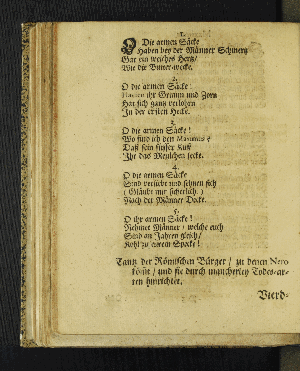 1.
O Die armen Säcke
Haben bey der Männer Schmertz
Gar ein weiches Hertz/
Wie die Butter-wecke.
2.
O die armen Säcke!
ihr Grimm und Zorn
Hat sich gantz verlohren
In der ersten Hecke.
3.
O die armen Säcke!
Wo find ich den
Daß sein süsser Kuß
Ihr das Mäulchen lecke.
4.
O die armen Säcke
Sind verliebt und sehnen sich
(Gläubt mir sicherlich)
Nach der Männer Decke.
5.
O ihr armen Säcke!
Nehmet Männer/ welche euch
Sind an Jahren gleich/
Kohl zu eurem Specke!
Tantz der Römischen Bürger/ zu denen Nero
kömt/ und sie durch mancherley Todes-ar-
ten hinrichtet.
Vierd-